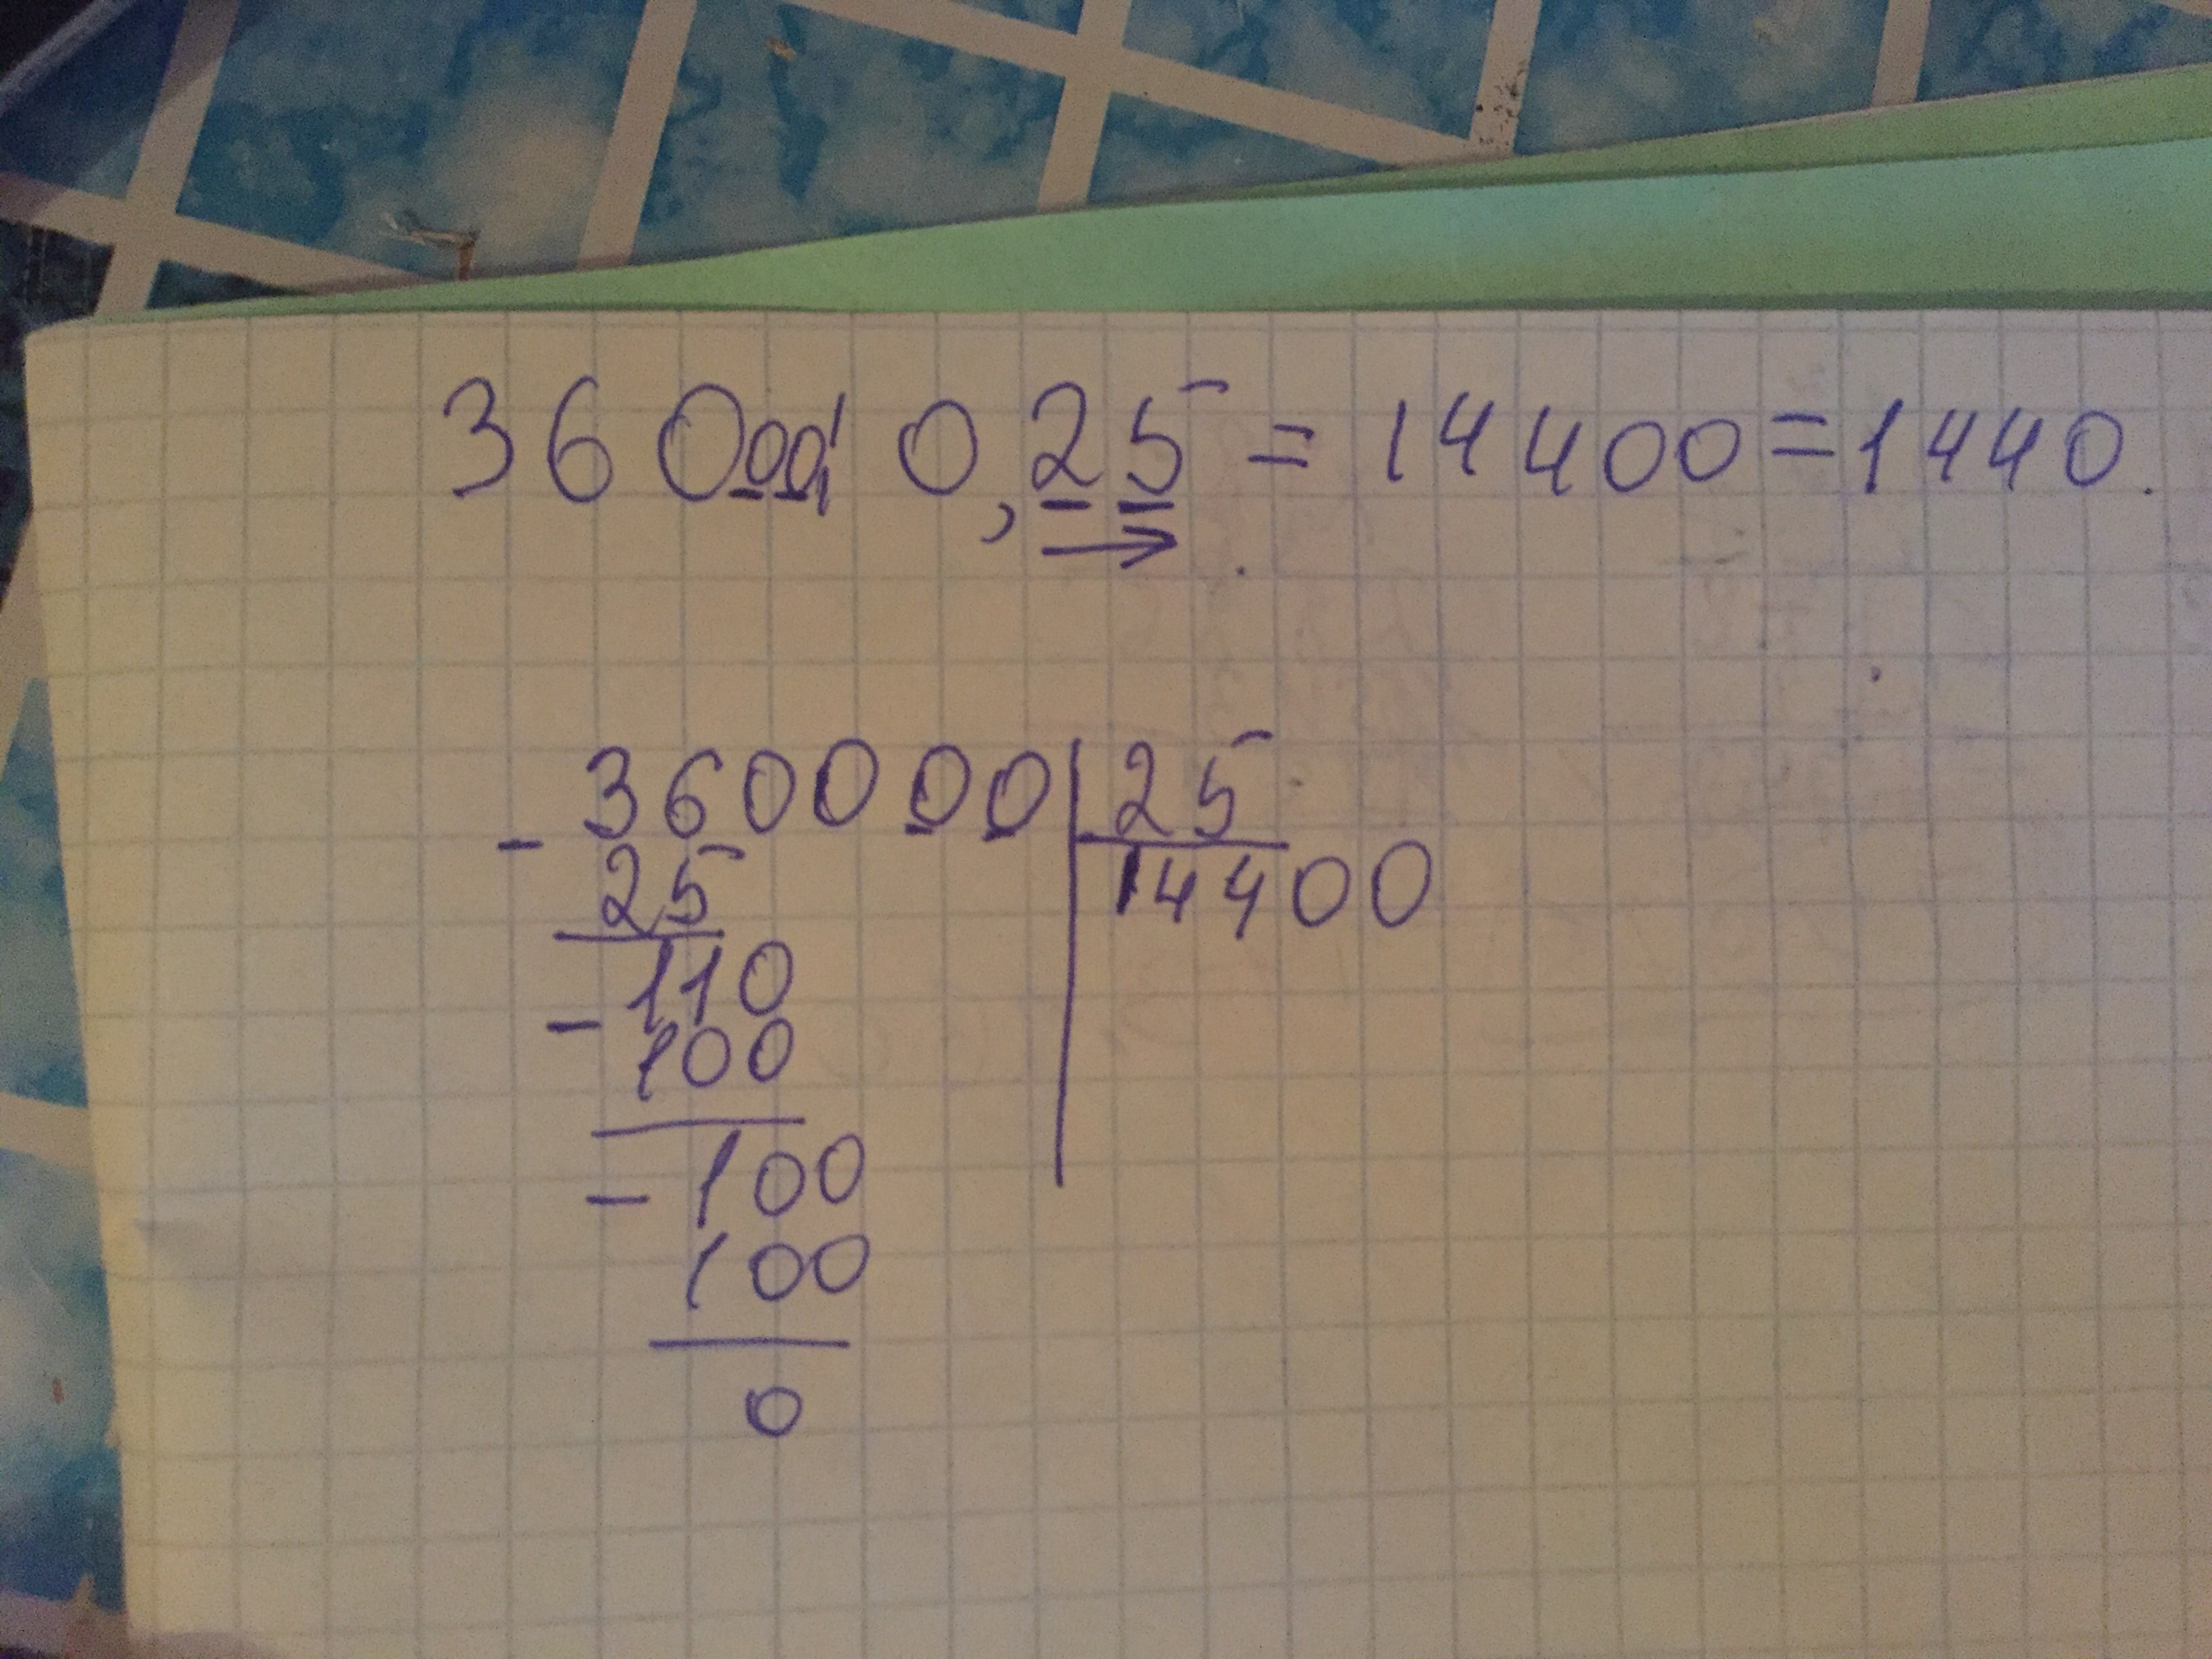 36000: 0,25 = 14400 = 1440.
- 360000 | 25
25 | 14400
- 110
100
- 100
100
0